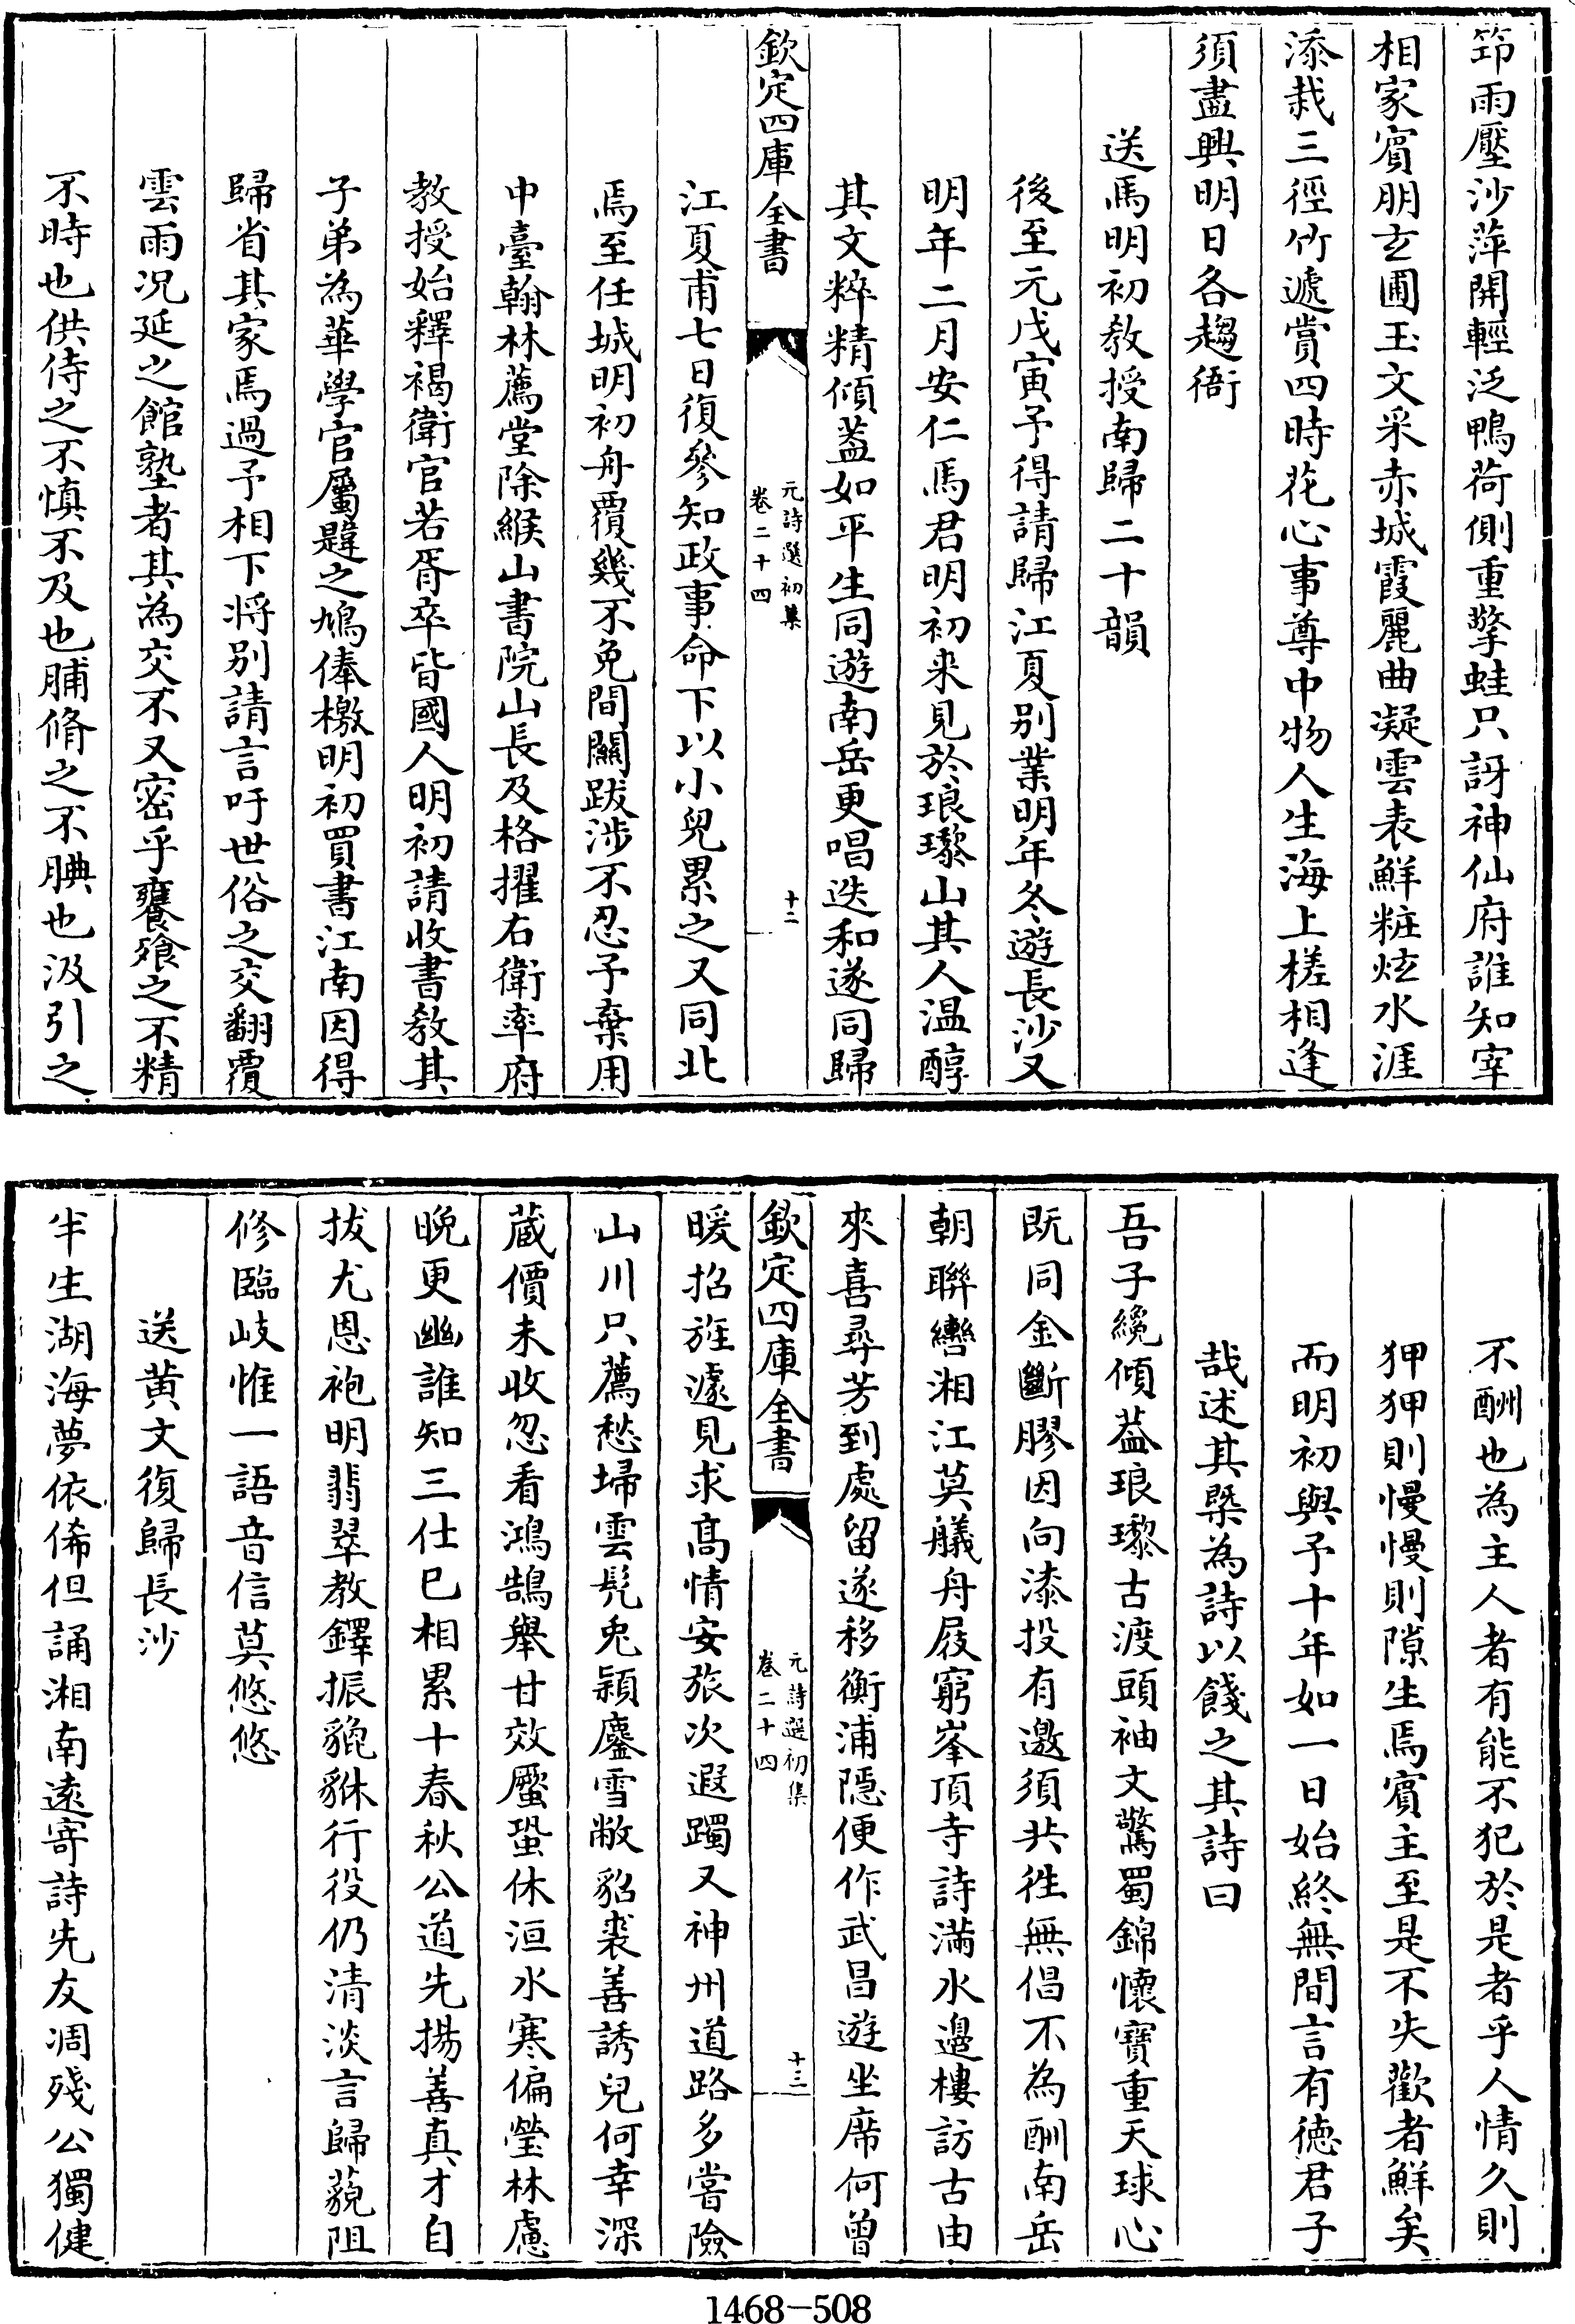 笻雨壓沙萍開輕泛鴨荷側重擎蛙只訝神仙府誰知宰
相家賓朋玄圃玉文采赤城霞麗曲凝雲表鮮粧炫水涯
添栽三徑竹遞賞四時花心事尊中物人生海上槎相逢
須盡興明日各趨衙
送馬明初教授南歸二十韻
後至元戊寅予得請歸江夏别業明年冬遊長沙又
明年二月安仁馬君明初来見於琅瓈山其人温醇
其文粹精傾葢如平生同遊南岳更唱迭和遂同歸
欽定四庫全書
元詩選初集
卷二十四
十二
江夏甫七日復參知政事命下以小兒累之又同北
焉至任城明初舟覆幾不免間關跋涉不忍予棄用
中臺翰林薦堂除緱山書院山長及格擢右衛率府
教授始釋褐衛官若胥卒皆國人明初請收書教其
子弟為華學官屬韙之鳩俸檄明初買書江南因得
歸省其家焉過予相下将别請言吁世俗之交翻覆
雲雨况延之館塾者其為交不又密乎饔飱之不精
不時也供侍之不慎不及也脯脩之不腆也汲引之
不酬也為主人者有能不犯於是者乎人情久則
狎狎則慢慢則隙生焉賓主至是不失歡者鮮矣
而明初與予十年如一日始終無間言有德君子
哉述其槩為詩以餞之其詩曰
吾子纔傾葢琅瓈古渡頭袖文驚蜀錦懷寶重天球心
既同金斷膠因向漆投有邀須共徃無倡不為酬南岳
朝聯轡湘江莫艤舟屐窮峯頂寺詩滿水邊樓訪古由
來喜尋芳到處留遂移衡浦隱便作武昌遊坐席何曾
欽定四庫全書
元詩選初集
卷二十四
十三
暖招旌遽見求髙情安旅次遐躅又神州道路多嘗險
山川只薦愁埽雲髡兎穎鏖雪敝貂裘善誘兒何幸深
蔵價未收忽看鴻鵠舉甘效蜃蛩休洹水寒偏瑩林慮
晚更幽誰知三仕已相累十春秋公道先揚善真才自
拔尤恩袍明翡翠教鐸振貔貅行役仍清淡言歸藐阻
修臨岐惟一語音信莫悠悠
送黄文復歸長沙
半生湖海夢依俙但誦湘南遠寄詩先友凋殘公獨健
1468-508